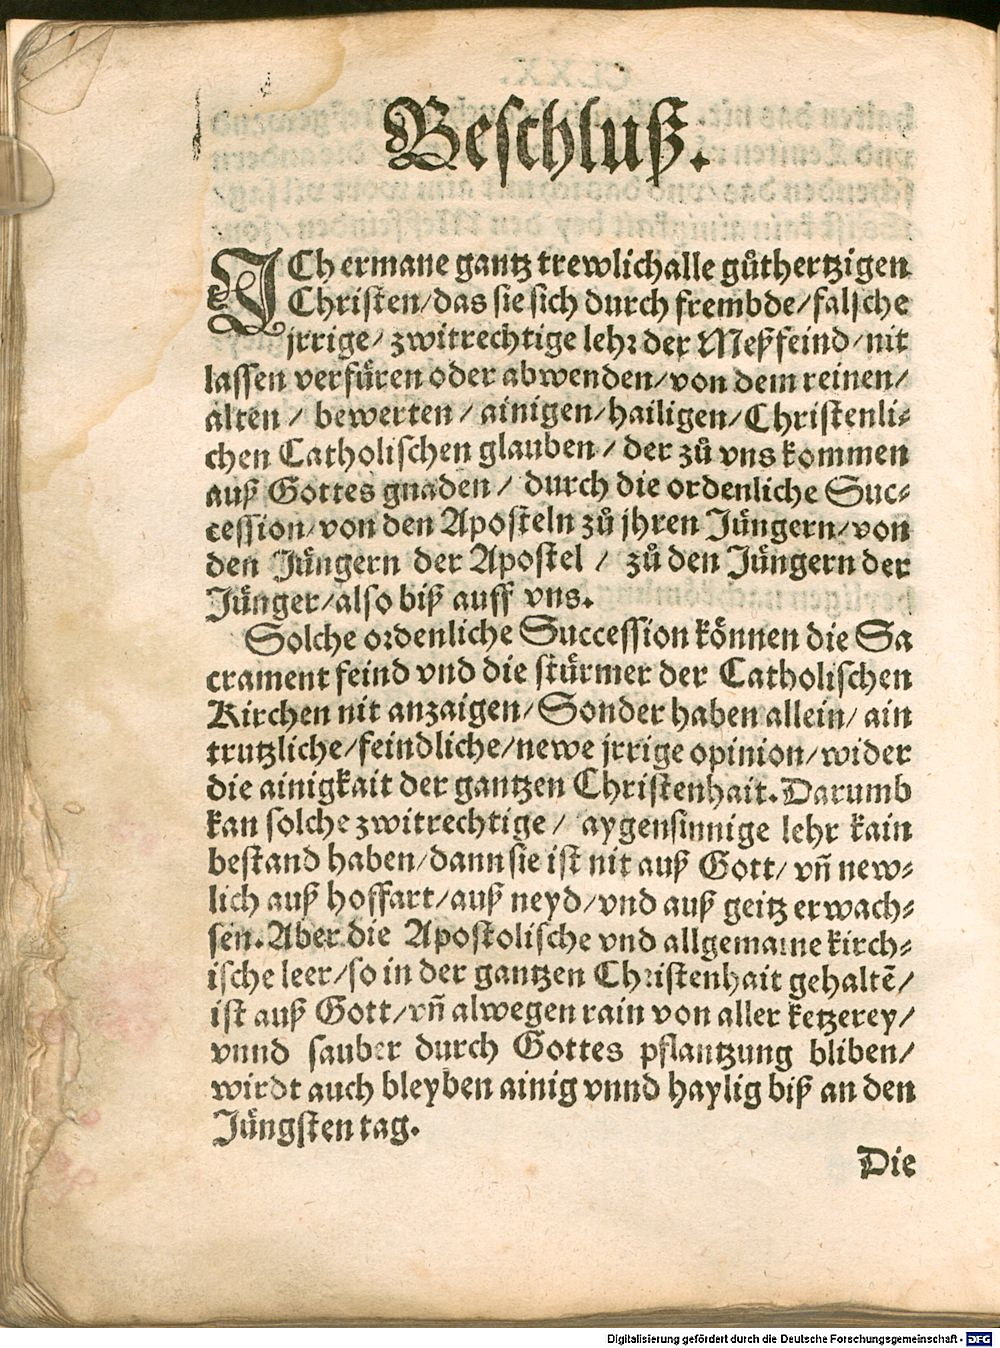 Beschluß.
ICh ermane gantz trewlich alle gůthertzigen
Christen/das sie sich durch frembde/falsche
jrrige/ zwitrechtige lehr der Meßfeind/nit
lassen verfüren oder abwenden/von dem reinen/
alten / bewerten / ainigen/hailigen/Christenli⸗
chen Catholischen glauben / der zů vns kommen
auß Gottes gnaden / durch die ordenliche Suc⸗
cession/von den Aposteln zů jhren Jüngern/von
den Jüngern der Apostel / zů den Jüngern der
Jünger/also biß auff vns.
Solche ordenliche Succession können die Sa
crament feind vnd die stürmer der Catholischen
Kirchen nit anzaigen/Sonder haben allein/ ain
trutzliche/feindliche/newe jrrige opinion/wider
die ainigkait der gantzen Christenhait.Darumb
kan solche zwitrechtige/ aygensinnige lehr kain
bestand haben/dann sie ist nit auß Gott/ vñ new⸗
lich auß hoffart/auß neyd/vnd auß geitz erwach⸗
sen.Aber die Apostolische vnd allgemaine kirch⸗
ische leer/so in der gantzen Christenhait gehaltẽ/
ist auß Gott/vñ alwegen rain von aller ketzerey/
vnnd sauber durch Gottes pflantzung bliben/
wirdt auch bleyben ainig vnnd haylig biß an den
Jüngsten tag.
Die
Digitalisierung gefördert durch die Deutsche Forschungsgemeinschaft - DFG